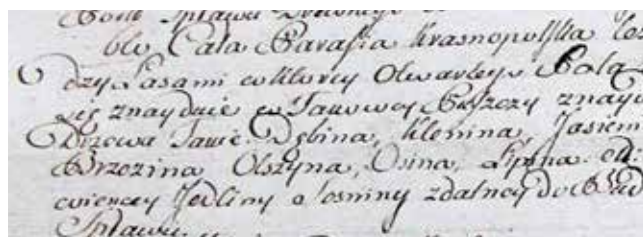 Spławu
bło Cała Parafia Krasnopolska
dzy Lasami w ktorey Otwartego Pola
się znayduie w Takowey Puszczy znayd
Drzewa Takie Dębina, Klenina, Jasieni
Brzezina Olszyna, Osina, Lipina
wiencey Jedliny Sosniny zdatney do Bud
Spławu